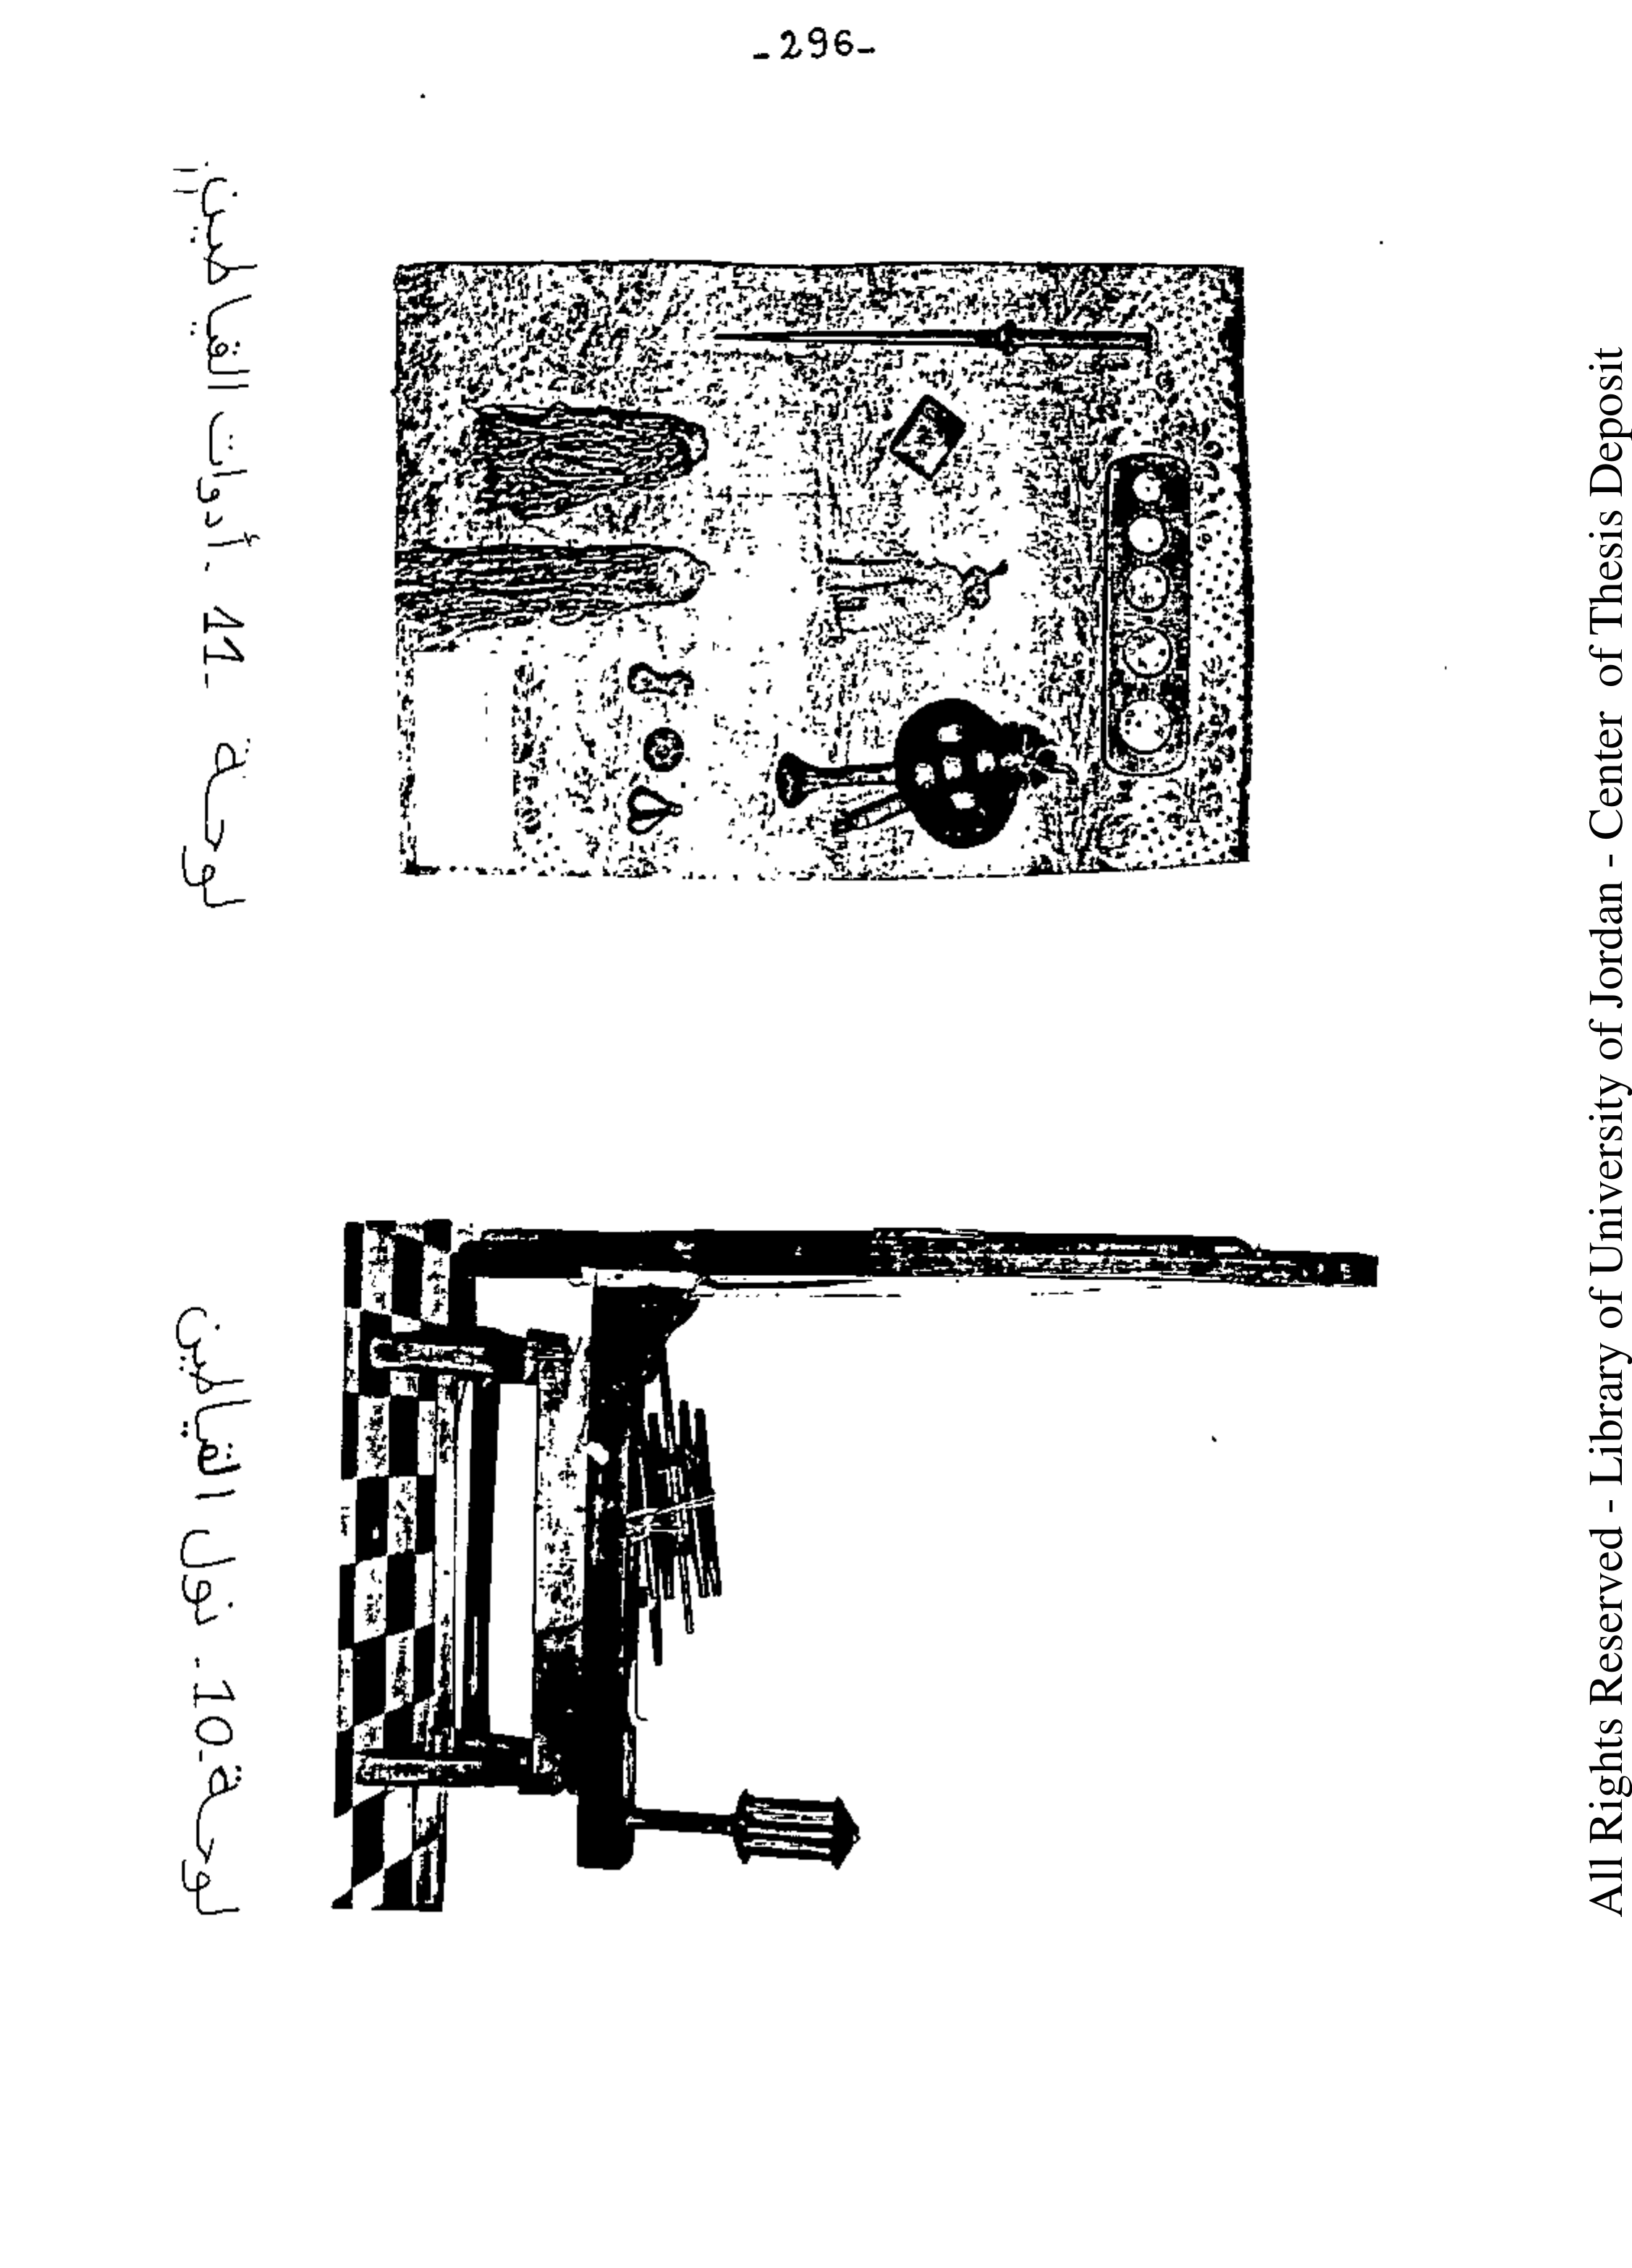 -296-
لوحة 11. أدوات القياطين
لوحة 10. نول القياطين
All Rights Reserved - Library of University of Jordan - Center of Thesis Deposit